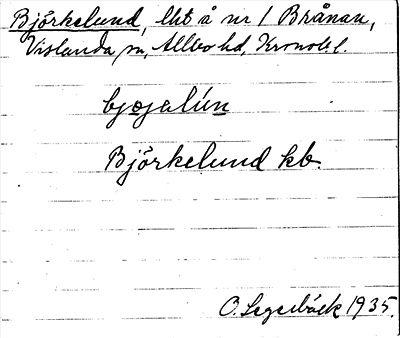 Björkelund, lht å nr 1 Brånan,
Vislanda sn, Allbo hd, Kronob. l.
Björkelund kb.
1935.